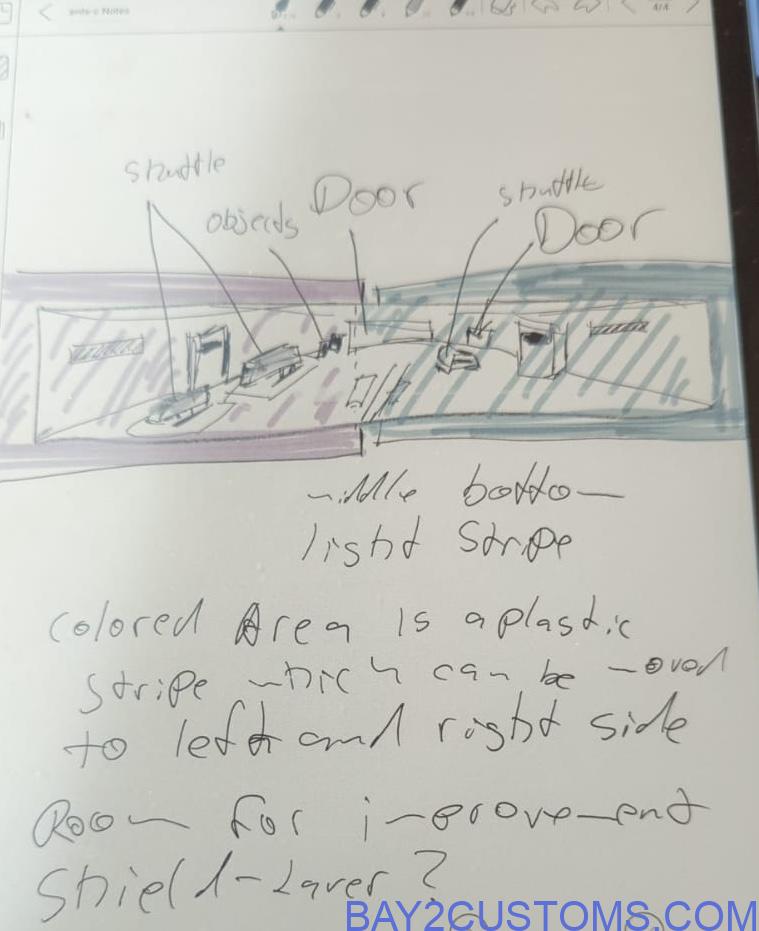 4/4
shuttle
objects
Door
shuttle
Door
middle bottom
light stripe
colored Area is a plastic
stripe which can be moved
to left and right side
Room for improvement
Shield-Layer?
BAY2CUSTOMS.COM